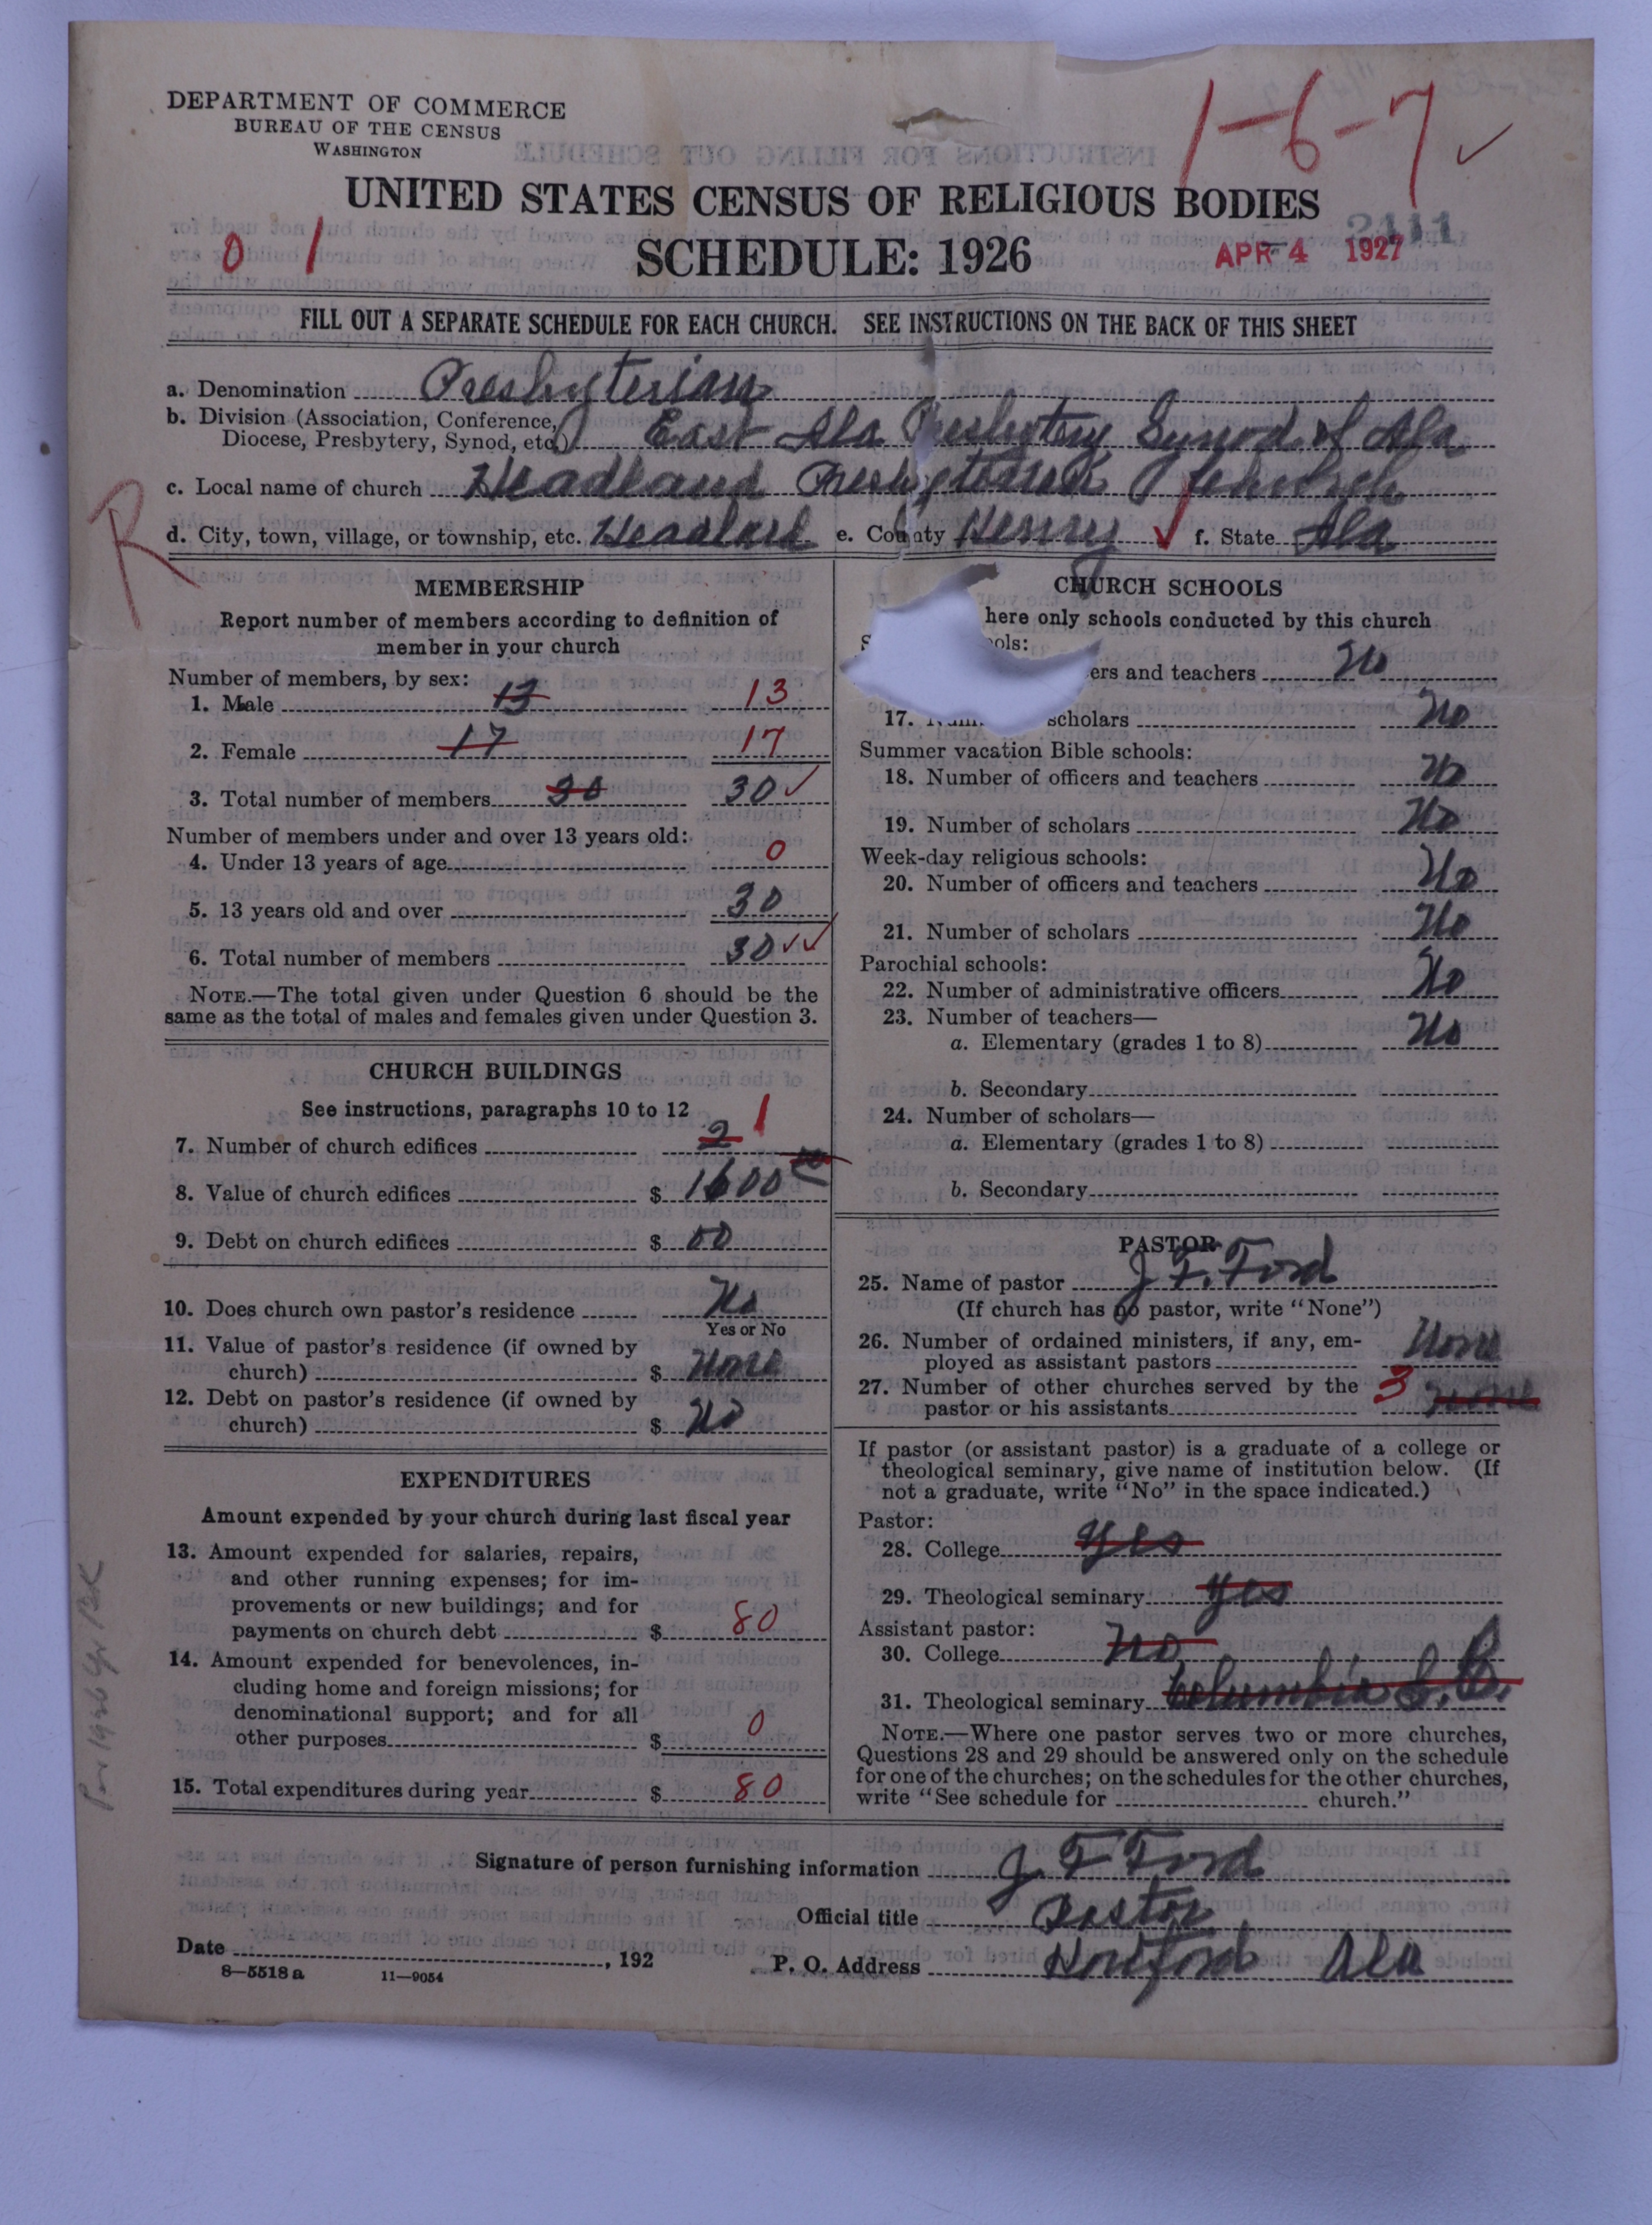 DEPARTMENT OF COMMERCE
BUREAU OF THE CENSUS
WASHINGTON
1-6-7 ✓
UNITED STATES CENSUS OF RELIGIOUS BODIES
0 1
SCHEDULE: 1926
2411
APR 4 1927
FILL OUT A SEPARATE SCHEDULE FOR EACH CHURCH. SEE INSTRUCTIONS ON THE BACK OF THIS SHEET
a. Denomination Presbyterian
b. Division (Association, Conference, Diocese, Presbytery, Synod, etc.) East Ala Presbytery Synod of Ala
c. Local name of church Headland Presbyterian Church
R
d. City, town, village, or township, etc. Headland e. County Henry ✓ f. State Ala
MEMBERSHIP
Report number of members according to definition of
member in your church
Number of members, by sex:
1. Male 13 13
2. Female 17 17
3. Total number of members 30 30 ✓
Number of members under and over 13 years old:
4. Under 13 years of age 0
5. 13 years old and over 30
6. Total number of members 30 ✓✓
NOTE.—The total given under Question 6 should be the
same as the total of males and females given under Question 3.
CHURCH BUILDINGS
See instructions, paragraphs 10 to 12
7. Number of church edifices 2 1
8. Value of church edifices $ 1600
9. Debt on church edifices $ 00
10. Does church own pastor's residence No
Yes or No
11. Value of pastor's residence (if owned by
church) $ None
12. Debt on pastor's residence (if owned by
church) $ No
EXPENDITURES
Amount expended by your church during last fiscal year
13. Amount expended for salaries, repairs,
and other running expenses; for im-
provements or new buildings; and for
payments on church debt $ 80
14. Amount expended for benevolences, in-
cluding home and foreign missions; for
denominational support; and for all
other purposes $ 0
15. Total expenditures during year $ 80
CHURCH SCHOOLS
here only schools conducted by this church
ols:
ers and teachers No
17. scholars No
Summer vacation Bible schools:
18. Number of officers and teachers No
19. Number of scholars No
Week-day religious schools:
20. Number of officers and teachers No
21. Number of scholars No
Parochial schools:
22. Number of administrative officers No
23. Number of teachers—
a. Elementary (grades 1 to 8) No
b. Secondary
24. Number of scholars—
a. Elementary (grades 1 to 8)
b. Secondary
PASTOR
25. Name of pastor J F. Ford
(If church has no pastor, write "None")
26. Number of ordained ministers, if any, em-
ployed as assistant pastors None
27. Number of other churches served by the
pastor or his assistants 3 None
If pastor (or assistant pastor) is a graduate of a college or
theological seminary, give name of institution below. (If
not a graduate, write "No" in the space indicated.)
Pastor:
28. College yes
29. Theological seminary yes
Assistant pastor:
30. College No
31. Theological seminary Columbia S. C.
NOTE.—Where one pastor serves two or more churches,
Questions 28 and 29 should be answered only on the schedule
for one of the churches; on the schedules for the other churches,
write "See schedule for church."
Signature of person furnishing information J F Ford
Official title Pastor
Date , 192
P. O. Address Ala
8—5518 a 11—9054